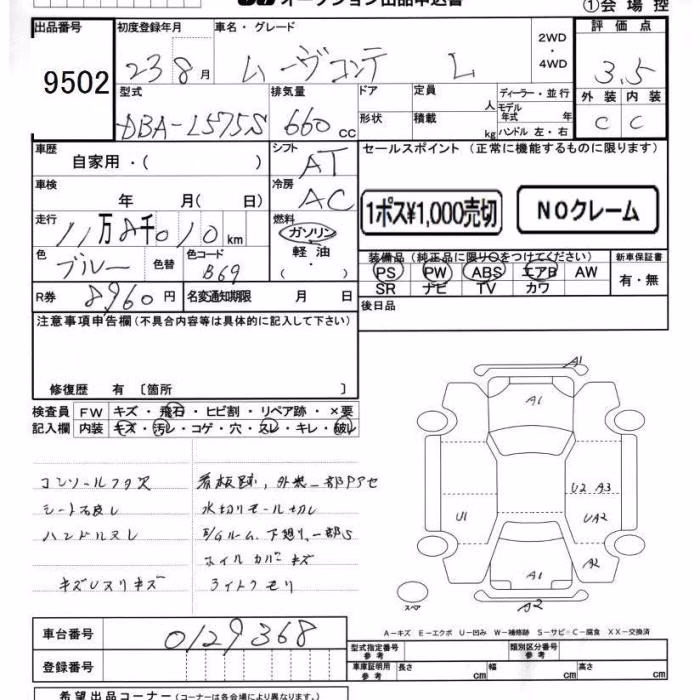 オークション出品申込書
①会場控
出品番号 9502
初度登録年月 23 8月
車名・グレード ムーヴコンテ L
2WD・4WD
評価点 3.5
型式 DBA-L575S
排気量 660 cc
ドア
形状
定員 人
積載 kg
ディーラー・並行
モデル年式 年
ハンドル 左・右
外装 C
内装 C
車歴 自家用・( )
シフト AT
セールスポイント(正常に機能するものに限ります)
車検 年 月( 日)
冷房 AC
1ポス¥1,000売切
NOクレーム
走行 11万8千010km
燃料 ガソリン 軽油 ・( )
色 ブルー
色替
色コード B69
装備品(純正品に限り○をつけてください)
PS PW ABS エアB AW
SR ナビ TV カワ
新車保証書 有・無
R券 8960円
名変通知期限 月 日
後日品
注意事項申告欄(不具合内容等は具体的に記入して下さい)
修復歴 有 〔箇所 〕
検査員記入欄
FW キズ・飛石・ヒビ割・リペア跡・×要
内装 キズ・汚レ・コゲ・穴・スレ・キレ・破レ
コンソールフタ欠
シート汚レ
ハンドルスレ
キズUスリキズ
看板跡、外装一部Pアセ
水切りモール切レ
E/Gルーム、下廻り、一部S
ホイルカバーキズ
ライトクモリ
A1
A1
U2 A3
U1
UA2
A2
A1
A2
スペア
A-キズ E-エクボ U-凹み W-補修跡 S-サビ C-腐食 XX-交換済
車台番号 0129368
登録番号
型式指定番号 参考
類別区分番号 参考
車庫証明用 参考 長さ cm 幅 cm 高さ cm
希望出品コーナー(コーナーは各会場により異なります。)